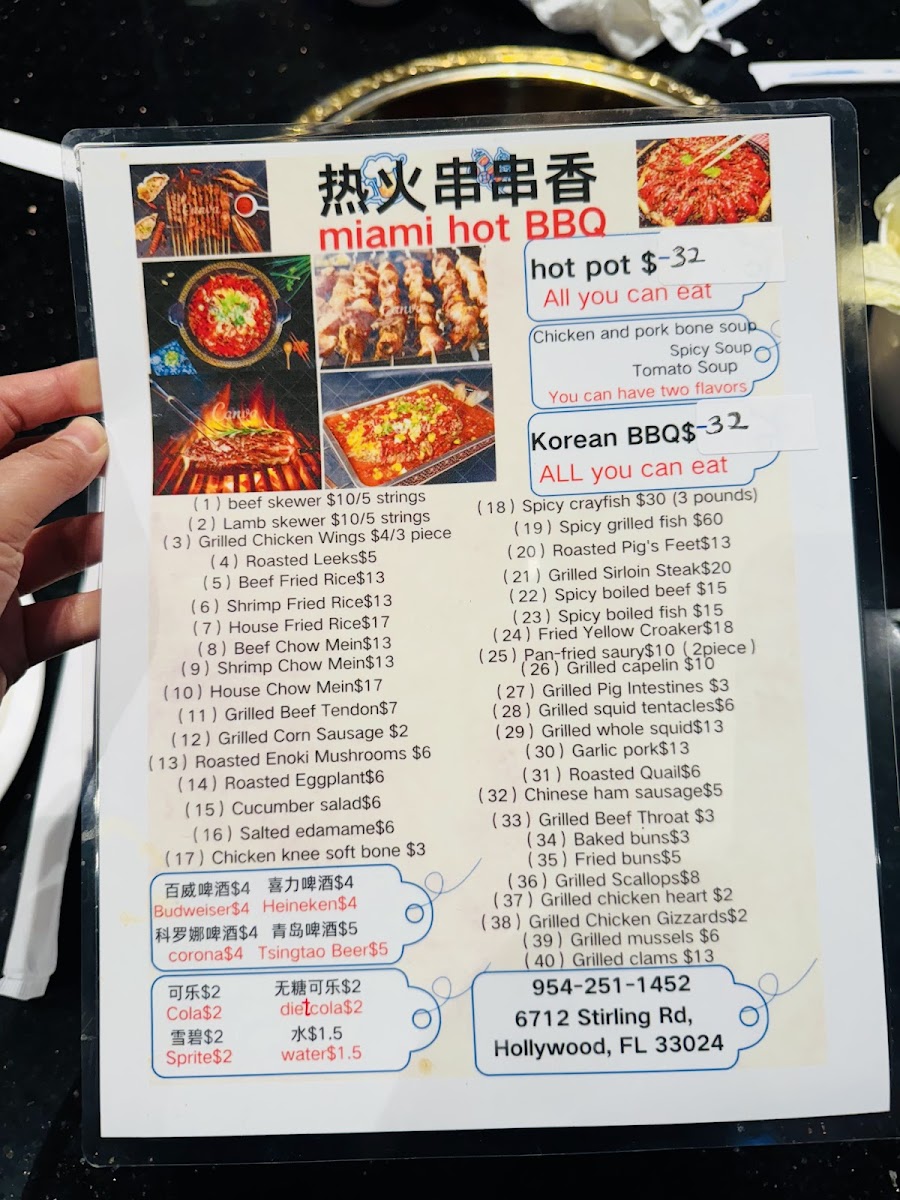 热火串串香
miami hot BBQ
hot pot $-32
All you can eat
Chicken and pork bone soup
Spicy Soup
Tomato Soup
You can have two flavors
Korean BBQ$-32
ALL you can eat
Canva
(1) beef skewer $10/5 strings
(2) Lamb skewer $10/5 strings
(3) Grilled Chicken Wings $4/3 piece
(4) Roasted Leeks$5
(5) Beef Fried Rice$13
(6) Shrimp Fried Rice$13
(7) House Fried Rice$17
(8) Beef Chow Mein$13
(9) Shrimp Chow Mein$13
(10) House Chow Mein$17
(11) Grilled Beef Tendon$7
(12) Grilled Corn Sausage $2
(13) Roasted Enoki Mushrooms $6
(14) Roasted Eggplant$6
(15) Cucumber salad$6
(16) Salted edamame$6
(17) Chicken knee soft bone $3
(18) Spicy crayfish $30 (3 pounds)
(19) Spicy grilled fish $60
(20) Roasted Pig's Feet$13
(21) Grilled Sirloin Steak$20
(22) Spicy boiled beef $15
(23) Spicy boiled fish $15
(24) Fried Yellow Croaker$18
(25) Pan-fried saury$10 (2piece)
(26) Grilled capelin $10
(27) Grilled Pig Intestines $3
(28) Grilled squid tentacles$6
(29) Grilled whole squid$13
(30) Garlic pork$13
(31) Roasted Quail$6
(32) Chinese ham sausage$5
(33) Grilled Beef Throat $3
(34) Baked buns$3
(35) Fried buns$5
(36) Grilled Scallops$8
(37) Grilled chicken heart $2
(38) Grilled Chicken Gizzards$2
(39) Grilled mussels $6
(40) Grilled clams $13
百威啤酒$4 喜力啤酒$4
Budweiser$4 Heineken$4
科罗娜啤酒$4 青岛啤酒$5
corona$4 Tsingtao Beer$5
可乐$2 无糖可乐$2
Cola$2 dietcola$2
雪碧$2 水$1.5
Sprite$2 water$1.5
954-251-1452
6712 Stirling Rd,
Hollywood, FL 33024